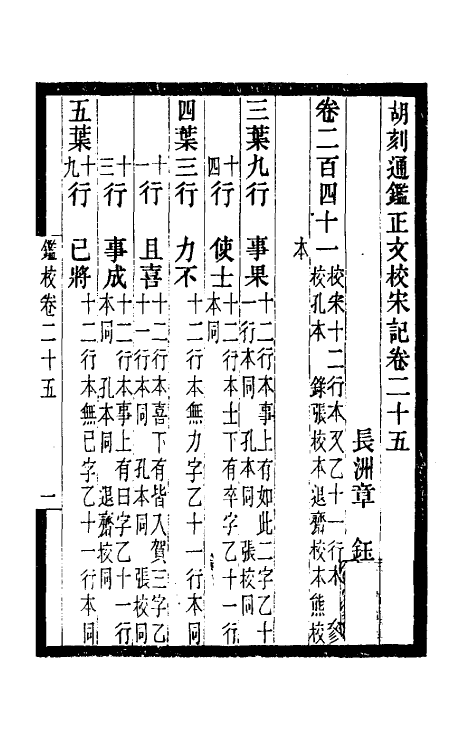 胡刻通鑑正文校宋記卷二十五
長洲章 鈺
卷二百四十一 校宋十二行本又乙十一行本 參
校孔本 錄張校本退齋校本熊校
本
三葉九行 事果 十二行本事上有如此二字乙十
一行本同 孔本同 張校同
十四行 使士 十二行本士下有卒字乙十一行
本同
四葉三行 力不 十二行本無力字乙十一行本同
十一行 且喜 十二行本喜下有皆入賀三字乙
十一行本同 孔本同 張校同
十三行 事成 十二行本事上有曰字乙十一行
本同 孔本同 退齋校同
五葉十九行 已將 十二行本無已字乙十一行本同
鑑校卷二十五
一